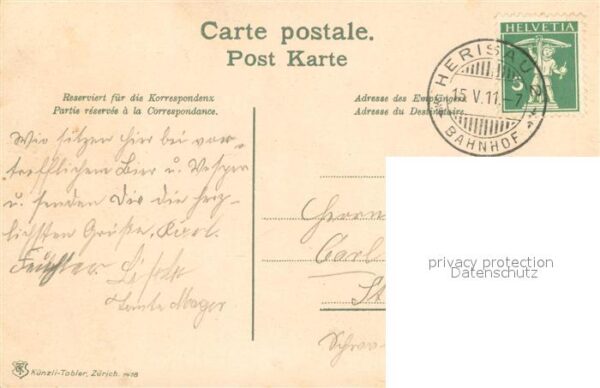 Carte postale.
Post Karte
HELVETIA
5
HERISAU
15 V. 11. - 7
BAHNHOF
Reserviert für die Korrespondenz
Partie réservée à la Correspondance.
Adresse des Empfängers
Adresse du Destinataire
Wir sitzen hier bei vor-
trefflichem Bier u. Vesper
u. senden Dir die herz-
lichsten Grüße,
Tante
Herrn
Carl
St
privacy protection
Datenschutz
Künzli-Tobler, Zürich.